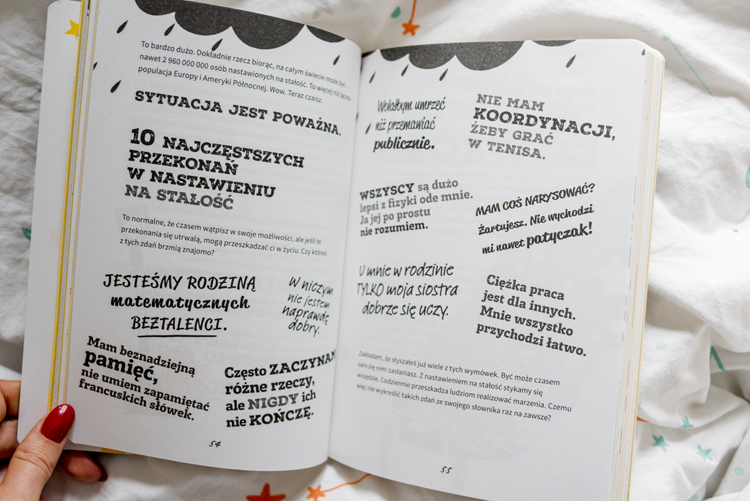 To bardzo dużo. Dokładnie rzecz biorąc, na całym świecie może być
nawet 2 960 000 000 osób nastawionych na stałość. To więcej niż łączna
populacja Europy i Ameryki Północnej. Wow. Teraz czaisz.
SYTUACJA JEST POWAŻNA.
10 NAJCZĘSTSZYCH
PRZEKONAŃ
W NASTAWIENIU
NA STAŁOŚĆ
To normalne, że czasem wątpisz w swoje możliwości, ale jeśli te
przekonania się utrwalą, mogą przeszkadzać ci w życiu. Czy któreś
z tych zdań brzmią znajomo?
JESTEŚMY RODZINĄ
matematycznych
BEZTALENCI.
W niczym
nie jestem
naprawdę
dobry.
Mam beznadziejną
pamięć,
nie umiem zapamiętać
francuskich słówek.
Często ZACZYNAM
różne rzeczy,
ale NIGDY ich
nie KOŃCZĘ.
54
Wolałbym umrzeć
niż przemawiać
publicznie.
NIE MAM
KOORDYNACJI,
ŻEBY GRAĆ
W TENISA.
WSZYSCY są dużo
lepsi z fizyki ode mnie.
Ja jej po prostu
nie rozumiem.
MAM COŚ NARYSOWAĆ?
Żartujesz. Nie wychodzi
mi nawet patyczak!
U mnie w rodzinie
TYLKO moja siostra
dobrze się uczy.
Ciężka praca
jest dla innych.
Mnie wszystko
przychodzi łatwo.
Zakładam, że słyszałeś już wiele z tych wymówek. Być może czasem
sam się nimi zasłaniasz. Z nastawieniem na stałość stykamy się
wszędzie. Codziennie przeszkadza ludziom realizować marzenia. Czemu
więc nie wykreślić takich zdań ze swojego słownika raz na zawsze?
55